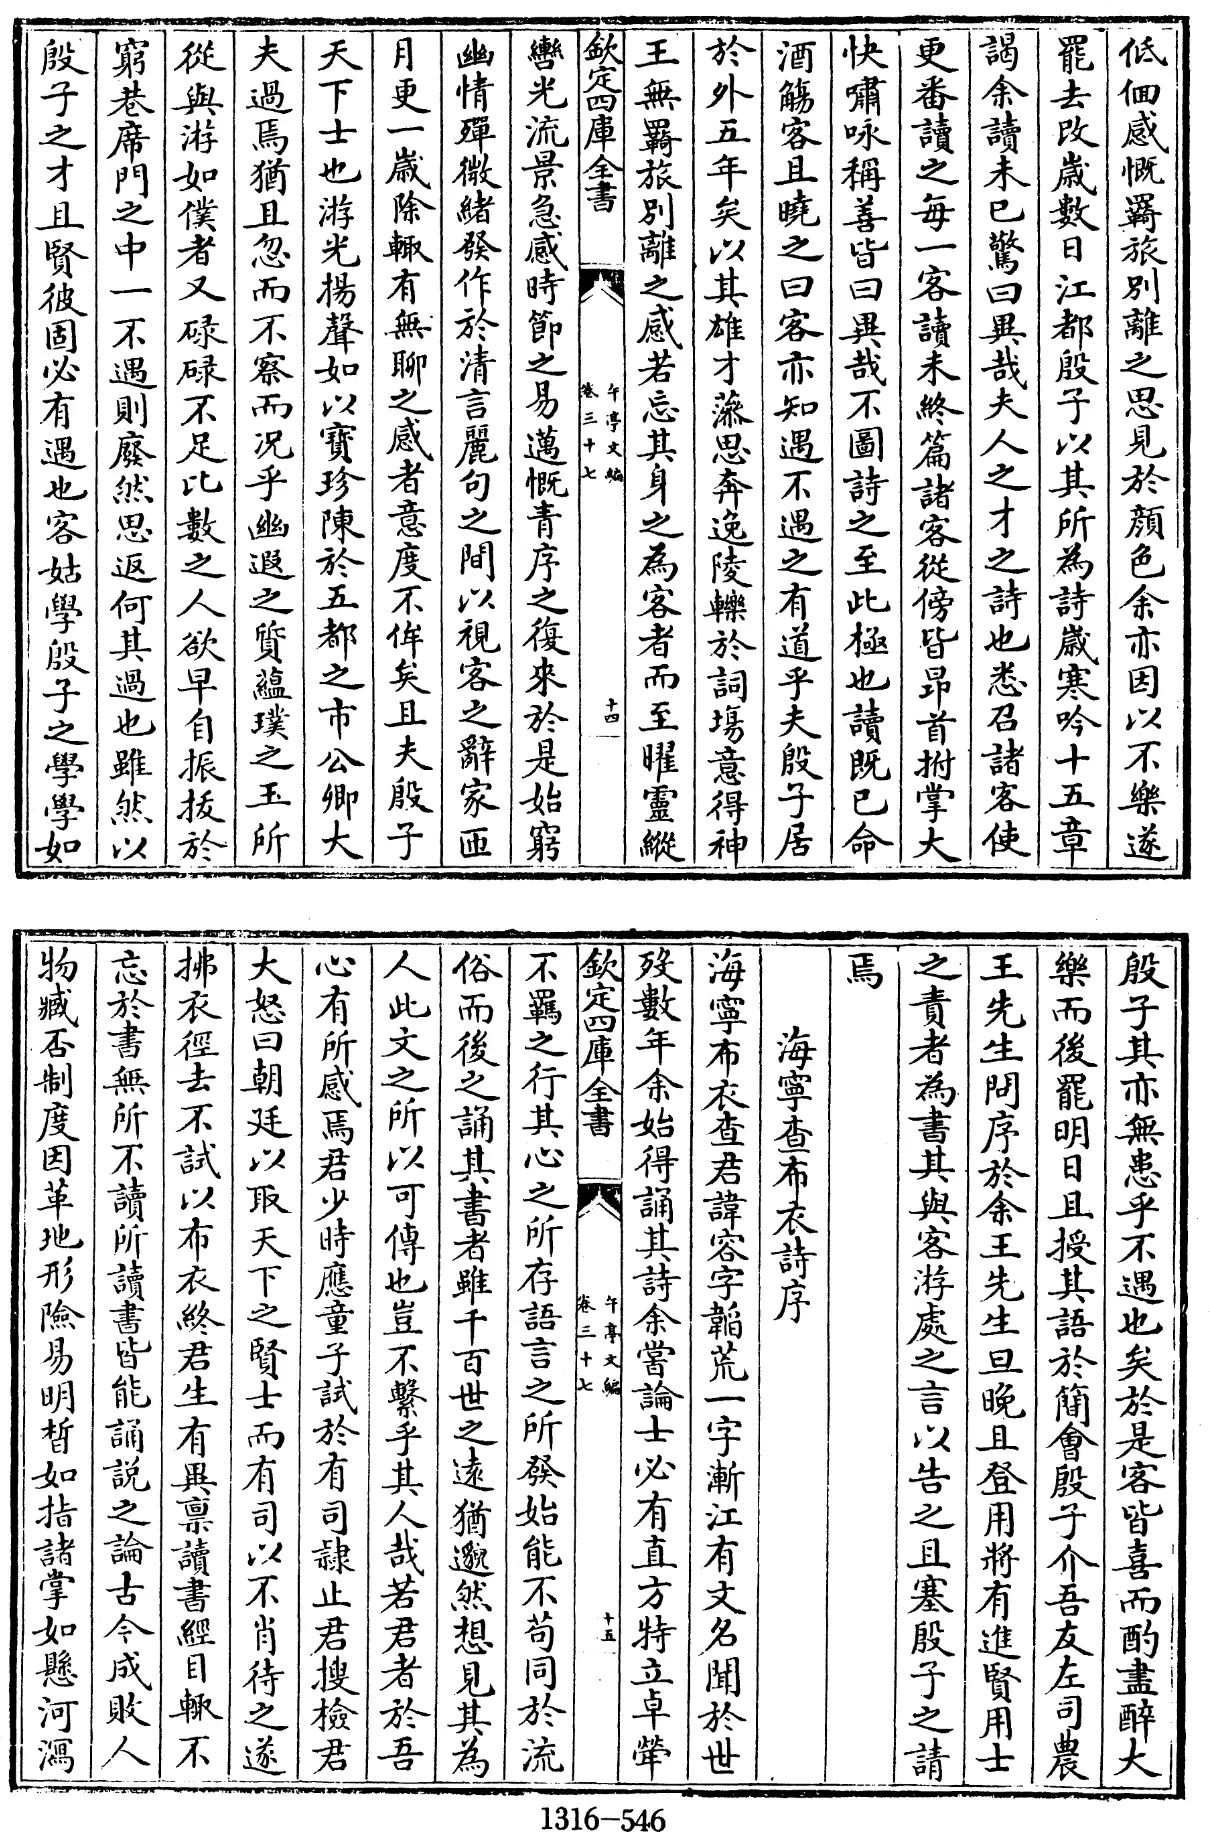 低佪感慨羇旅別離之思見於顔色余亦因以不樂遂
罷去改歳數日江都殷子以其所為詩歳寒吟十五章
謁余讀未已驚曰異哉夫人之才之詩也悉召諸客使
更番讀之每一客讀未終篇諸客從傍皆昂首拊掌大
快嘯咏稱善皆曰異哉不圖詩之至此極也讀既已命
酒觴客且曉之曰客亦知遇不遇之有道乎夫殷子居
於外五年矣以其雄才藻思奔逸陵轢於詞場意得神
王無羇旅別離之感若忘其身之為客者而至曜靈縱
欽定四庫全書
午亭文編
卷三十七
十四
轡光流景急感時節之易邁慨青序之復來於是始窮
幽情殫微緒發作於清言麗句之間以視客之辭家匝
月更一歳除輙有無聊之感者意度不侔矣且夫殷子
天下士也游光揚聲如以寶珍陳於五都之市公卿大
夫過焉猶且忽而不察而况乎幽遐之質蘊璞之玉所
從與游如僕者又碌碌不足比數之人欲早自振拔於
窮巷席門之中一不遇則廢然思返何其過也雖然以
殷子之才且賢彼固必有遇也客姑學殷子之學學如
殷子其亦無患乎不遇也矣於是客皆喜而酌盡醉大
樂而後罷明日且授其語於簡會殷子介吾友左司農
王先生問序於余王先生旦晚且登用將有進賢用士
之責者為書其與客游處之言以告之且塞殷子之請
焉
海寧查布衣詩序
海寧布衣查君諱容字韜荒一字漸江有文名聞於世
歿數年余始得誦其詩余嘗論士必有直方特立卓犖
欽定四庫全書
午亭文編
卷三十七
十五
不羈之行其心之所存語言之所發始能不茍同於流
俗而後之誦其書者雖千百世之遠猶邈然想見其為
人此文之所以可傳也豈不繫乎其人哉若君者於吾
心有所感焉君少時應童子試於有司隷止君搜檢君
大怒曰朝廷以取天下之賢士而有司以不肖待之遂
拂衣徑去不試以布衣終君生有異禀讀書經目輙不
忘於書無所不讀所讀書皆能誦說之論古今成敗人
物臧否制度因革地形險易明晢如指諸掌如懸河瀉
1316-546